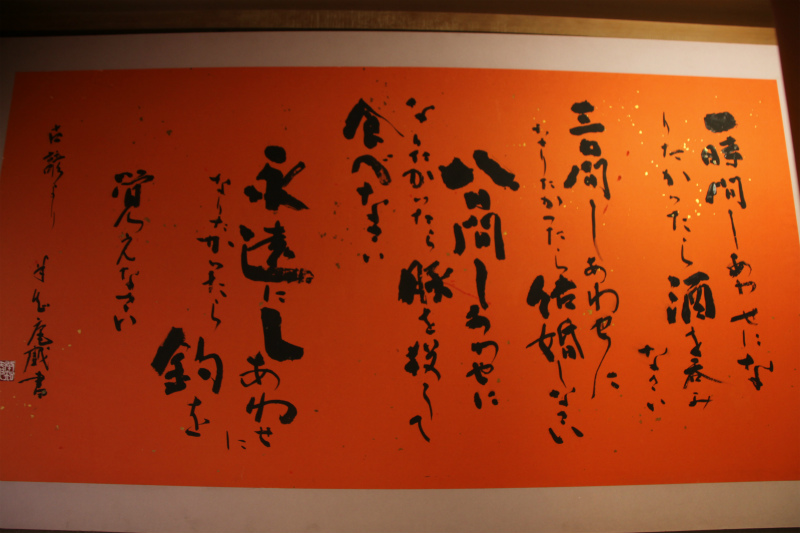 一時間しあわせにな
りたかったら酒を呑み
なさい
三日間しあわせに
なりたかったら結婚しなさい
八日間しあわせに
なりたかったら豚を殺して
食べなさい
永遠にしあわせに
なりたかったら釣を
覚えなさい
古諺より
書